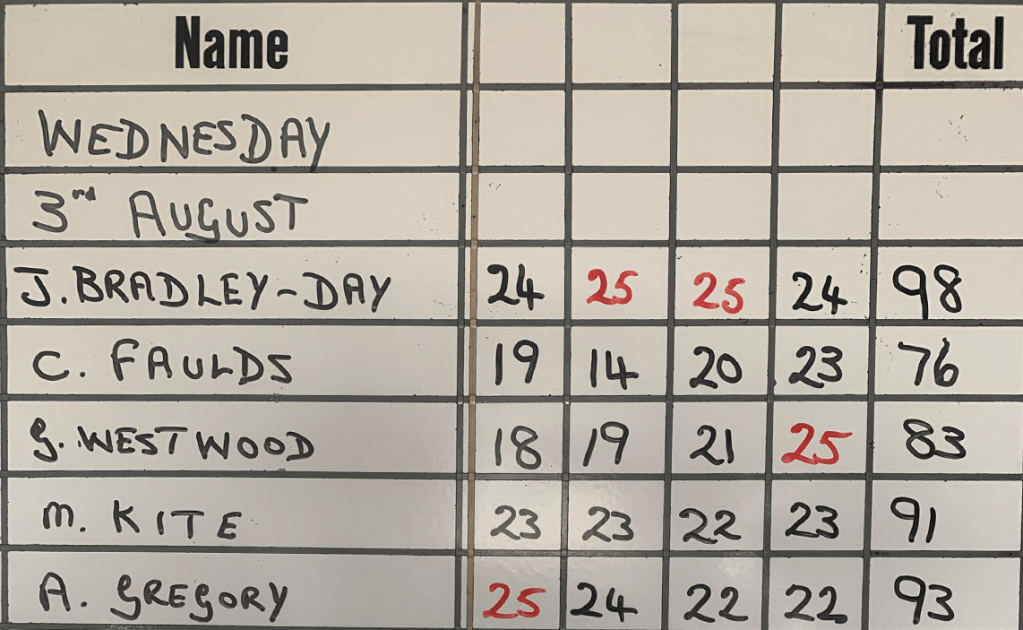 Name Total
WEDNESDAY
3rd AUGUST
J. BRADLEY-DAY 24 25 25 24 98
C. FAULDS 19 14 20 23 76
G. WESTWOOD 18 19 21 25 83
M. KITE 23 23 22 23 91
A. GREGORY 25 24 22 22 93